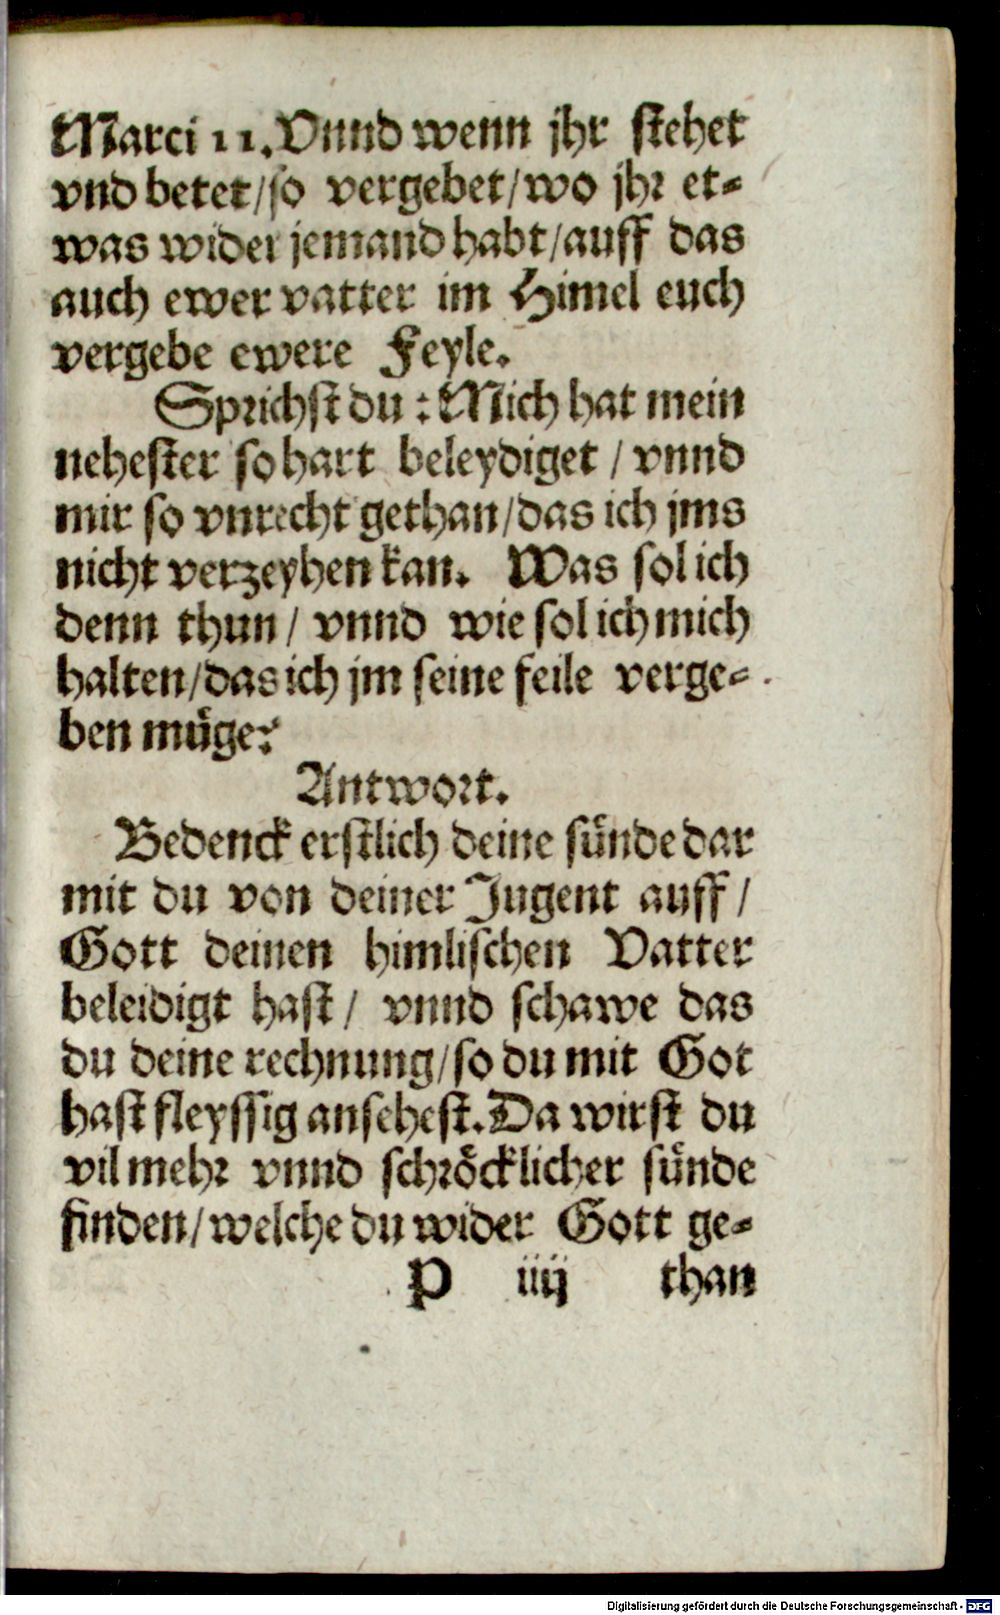 Marci 11. Vnnd wenn jhr stehet
vnd betet/so vergebet/wo jhr et-
was wider jemand habt/auff das
auch ewer vatter im Himel euch
vergebe ewere Feyle.
Sprichst du : Mich hat mein
nehester so hart beleydiget / vnnd
mir so vnrecht gethan/das ich jms
nicht verzeyhen kan. Was sol ich
denn thun / vnnd wie sol ich mich
halten/das ich jm seine feile verge-
ben müge?
Antwort.
Bedenck erstlich deine sünde dar
mit du von deiner Jugent auff /
Gott deinen himlischen Vatter
beleidigt hast / vnnd schawe das
du deine rechnung/so du mit Got
hast fleyssig ansehest. Da wirst du
vil mehr vnnd schröcklicher sünde
finden/welche du wider Gott ge-
P iiij than
Digitalisierung gefördert durch die Deutsche Forschungsgemeinschaft - DFG